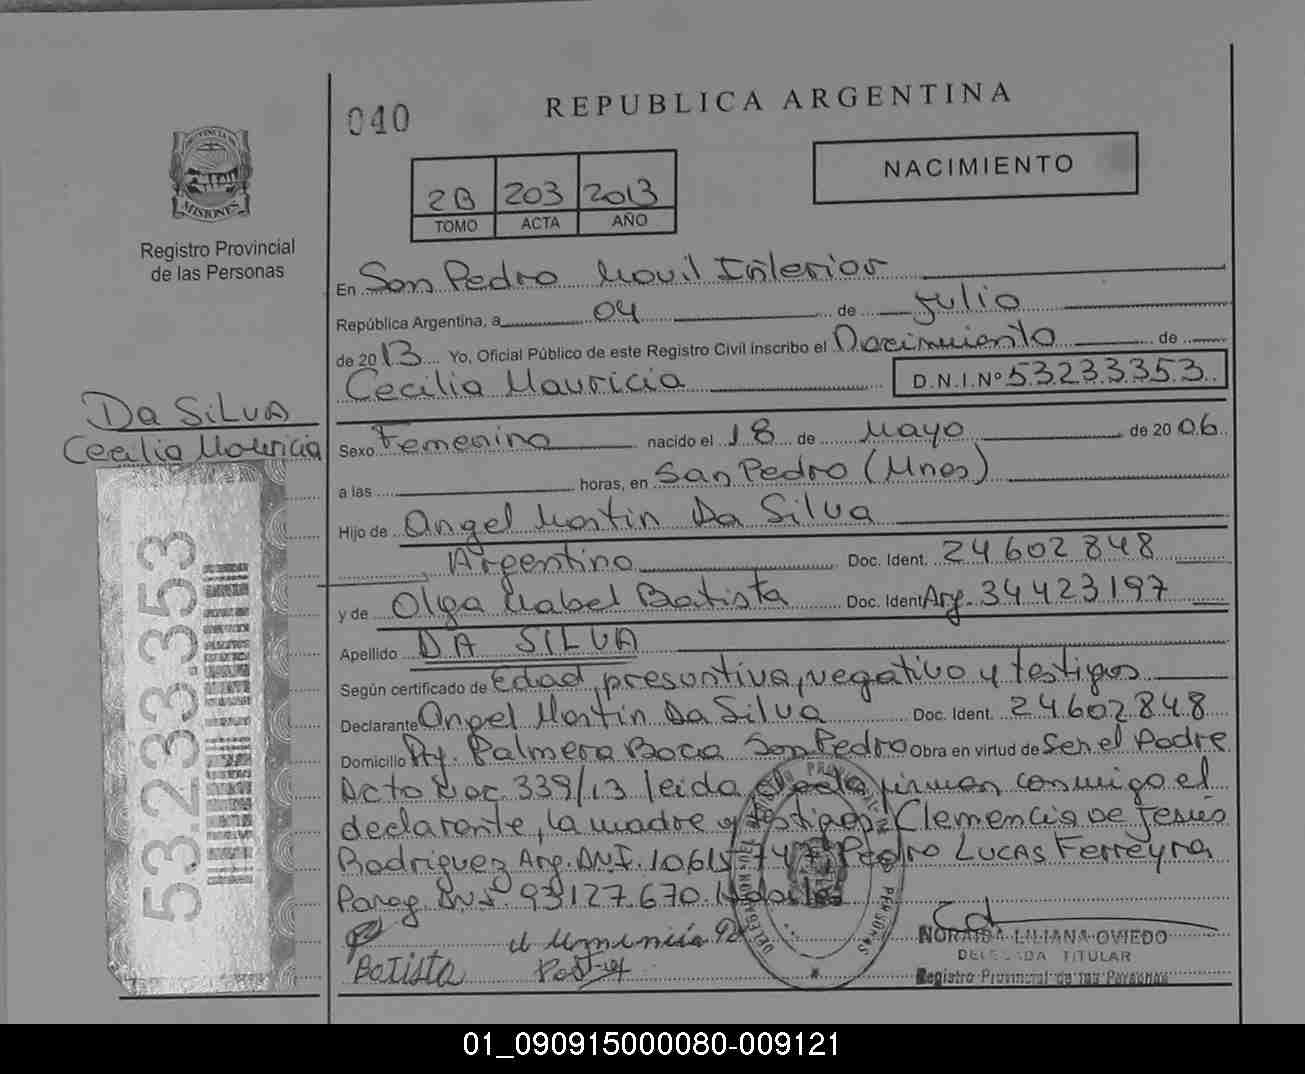 040
REPUBLICA ARGENTINA
NACIMIENTO
2B 203 2013
TOMO ACTA AÑO
PROVINCIA
MISIONES
Registro Provincial
de las Personas
En San Pedro Movil Interior
República Argentina, a 04 de Julio
de 2013 Yo, Oficial Público de este Registro Civil inscribo el Nacimiento de
Cecilia Mauricia D.N.I.Nº 53233353
Da SiLva
Cecilia Mauricia
Sexo Femenino nacido el 18 de Mayo de 2006
a las horas, en San Pedro (Mnes)
Hijo de Angel Martin Da Silva
Argentino Doc. Ident. 24602848
y de Olga Mabel Batista Doc. Ident Arg. 34423197
Apellido DA SILVA
Según certificado de Edad presuntiva, negativo y testigos
Declarante Angel Martin Da Silva Doc. Ident. 24602848
Domicilio Py. Palmera Boca San Pedro Obra en virtud de Ser el Padre
Acta Nac. 339/13 leida firman conmigo el
declarante, la madre y testigos: Clemencia De Jesús
Rodriguez Arg. DNI. 10615 Pedro Lucas Ferreyra
Parag. DNI. 93127.670.
Batista
NORAIDA LILIANA OVIEDO
DELEGADA TITULAR
Registro Provincial de las Personas
53.233.353
01_090915000080-009121